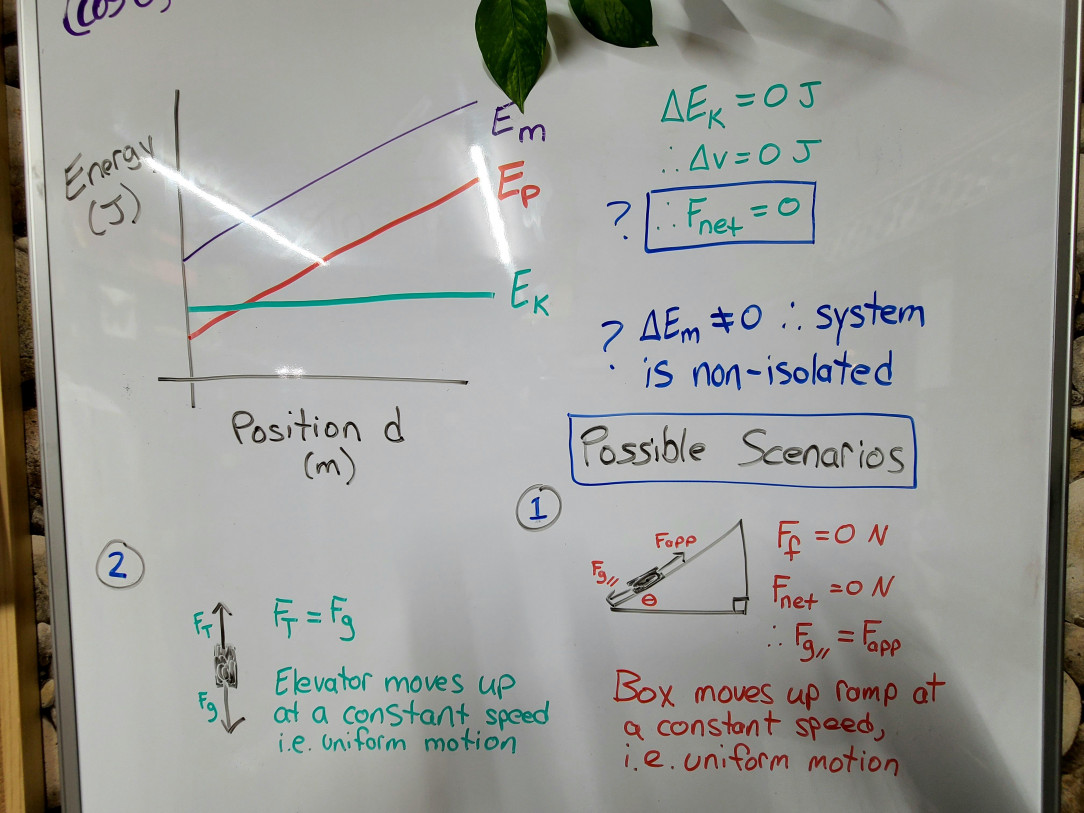 (cos
Energy
(J)
Em
Ep
EK
Position d
(m)
ΔEK = 0 J
∴ Δv = 0 J
? ∴ Fnet = 0
? ΔEm ≠ 0 ∴ system
is non-isolated
Possible Scenarios
1
Fapp
Fg//
θ
Ff = 0 N
Fnet = 0 N
∴ Fg// = Fapp
Box moves up ramp at
a constant speed,
i.e. uniform motion
2
FT
Fg
FT = Fg
Elevator moves up
at a constant speed
i.e. uniform motion